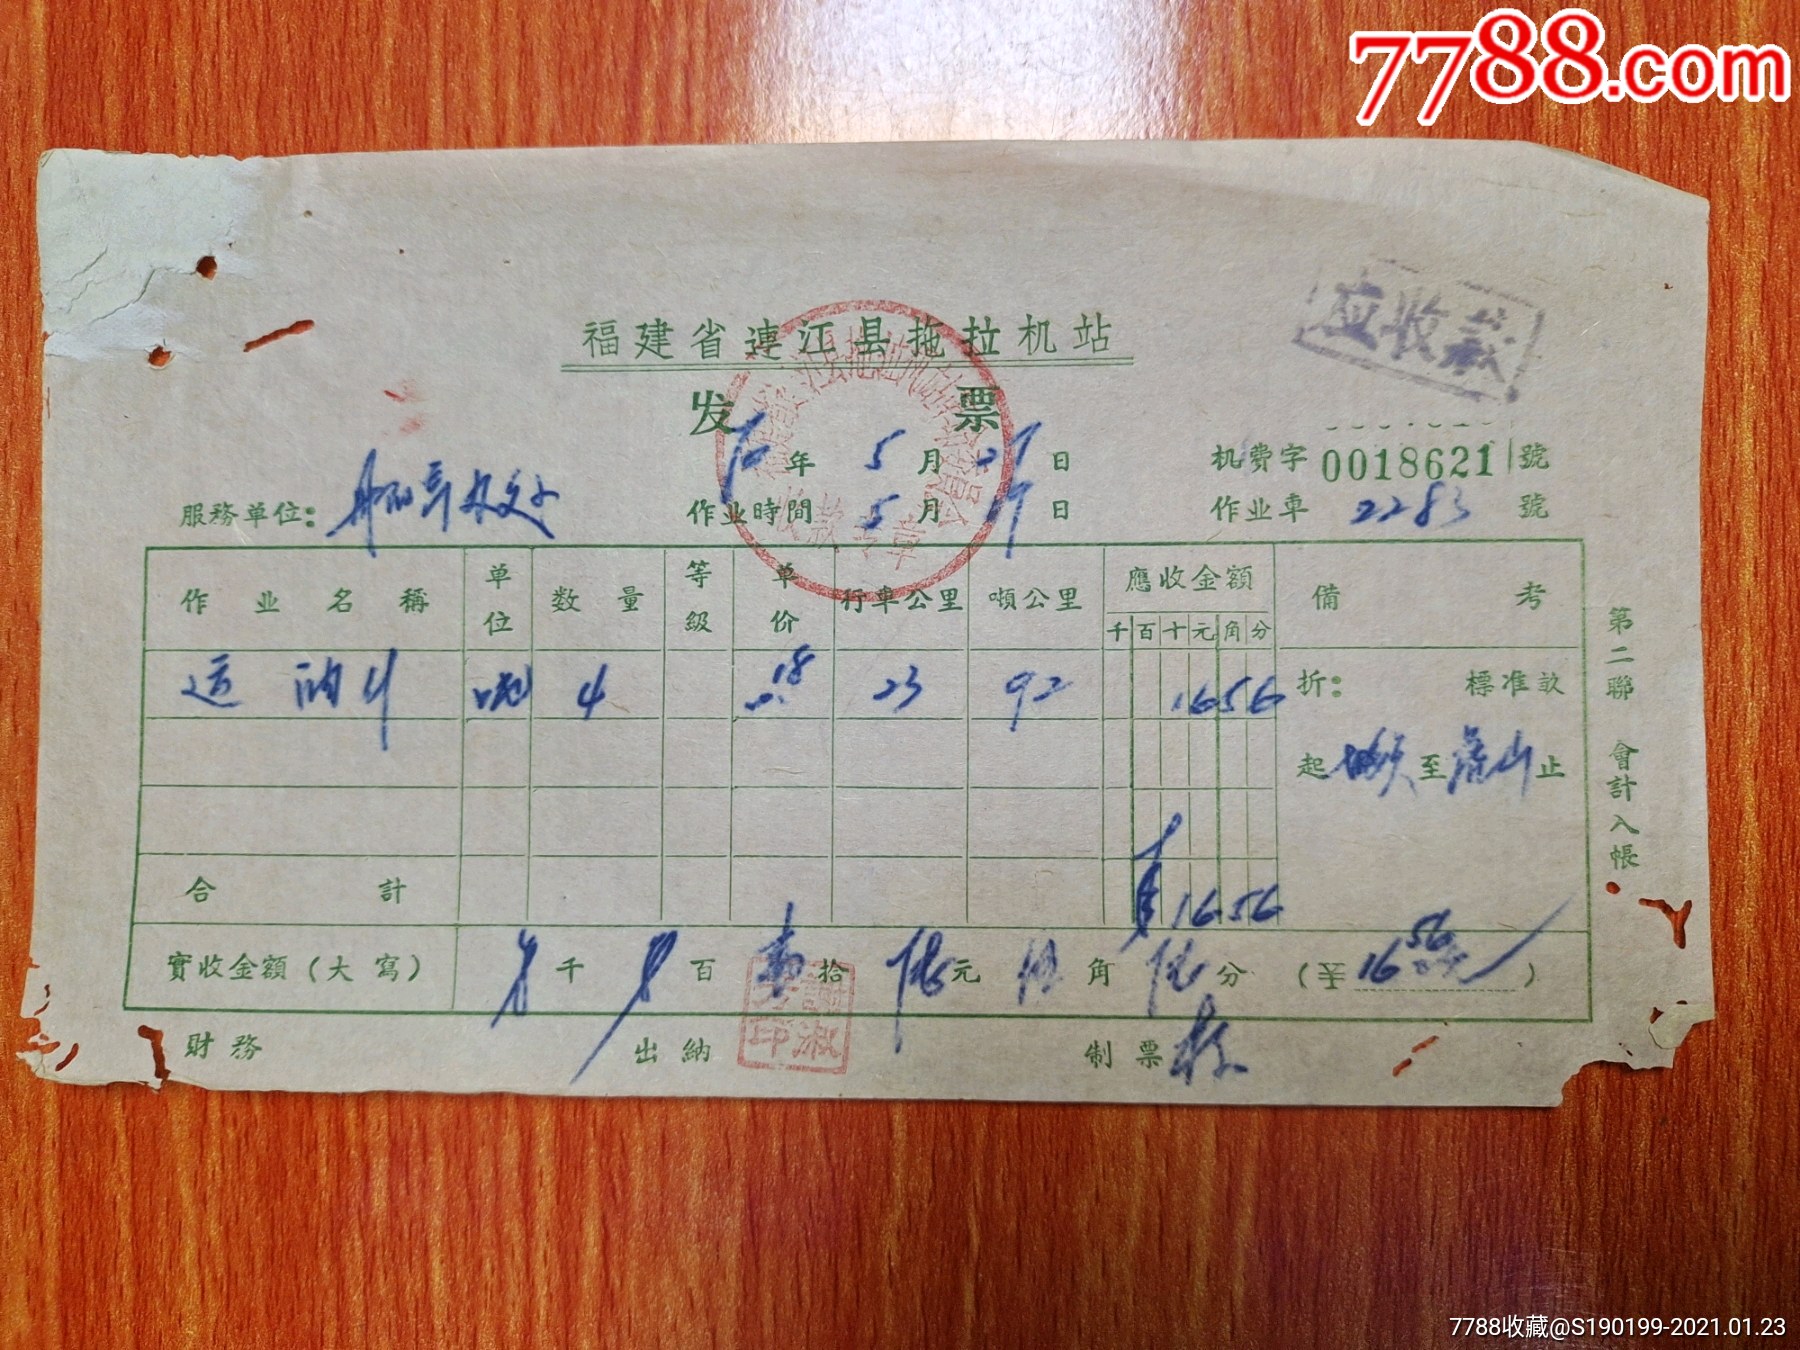 7788.com
应收款
福建省連江县拖拉机站
发票
70年5月27日
机费字0018621號
服務单位:
作业時間 5月17日
作业車2283號
作业名稱 单位 数量 等级 单价 行車公里 噸公里 應收金額 備考
千百十元角分
运 吨 4 0.18 23 92 1656 折: 標准畝
起 至 山止
合計 1656
實收金額(大寫) 千 百 壹拾陆元伍角陆分 (¥16.56)
財務 出納 制票
第二聯 會計入帳
收款专章
7788收藏@S190199-2021.01.23